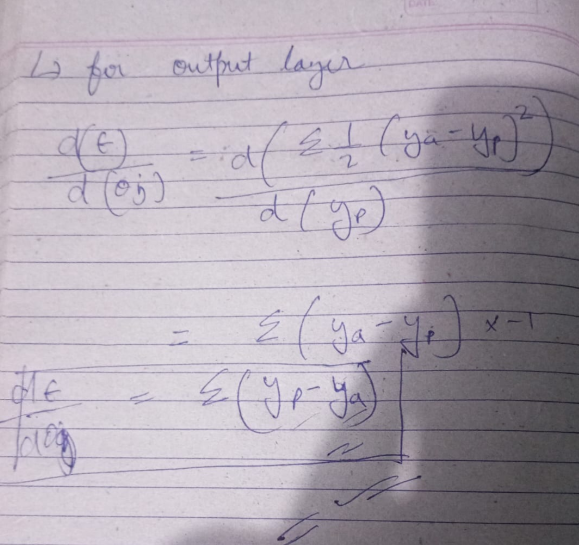 ↳ for output layer
d(E)/d(Oj) = d(Σ 1/2 (ya - yp)^2)/d(yp)
= Σ(ya - yp) x -1
dE/dOj = Σ(yp - ya)